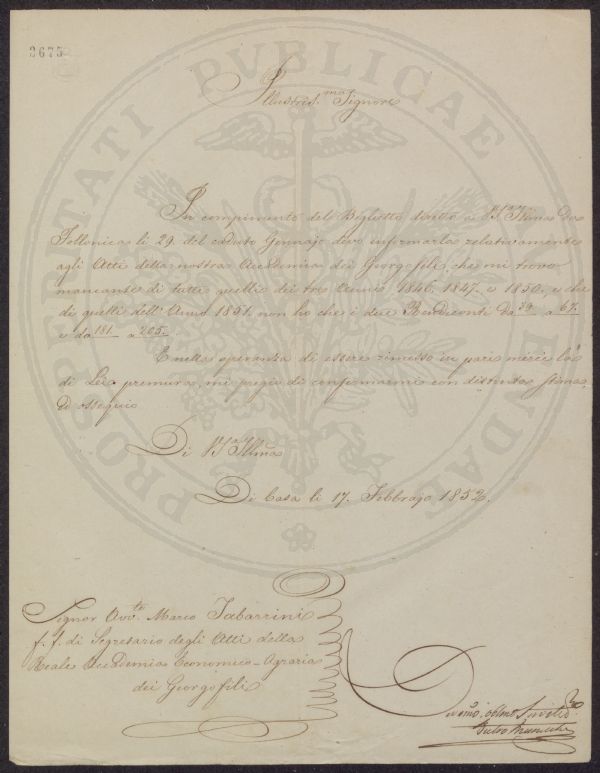 2675
Illustris.mo Signore
In compimento del Biglietto a V.S. Illma da
Follonica li 29. del caduto Gennajo devo informarla relativamente
agli Atti della nostra Accademia dei Georgofili, che mi trovo
mancante di tutti quelli dei tre Annui 1846. 1847. e 1850. e che
di quelli dell'Anno 1851. non ho che i due Rendiconti da 39 a 67.
e da 181 a 205.
E nella speranza di essere rimesso in pari mercè la
di Lei premura, mi pregio di confermarmi con distinta stima,
ed ossequio
Di V.S. Illma
Di Casa li 17. Febbrajo 1852.
Signor Avv.to Marco Tabarrini
f. f. di Segretario degli Atti della
Reale Accademia Economico-Agraria
dei Georgofili
Devmo. obbmo Servitore
PROSPERITATI PUBLICAE AUGENDAE